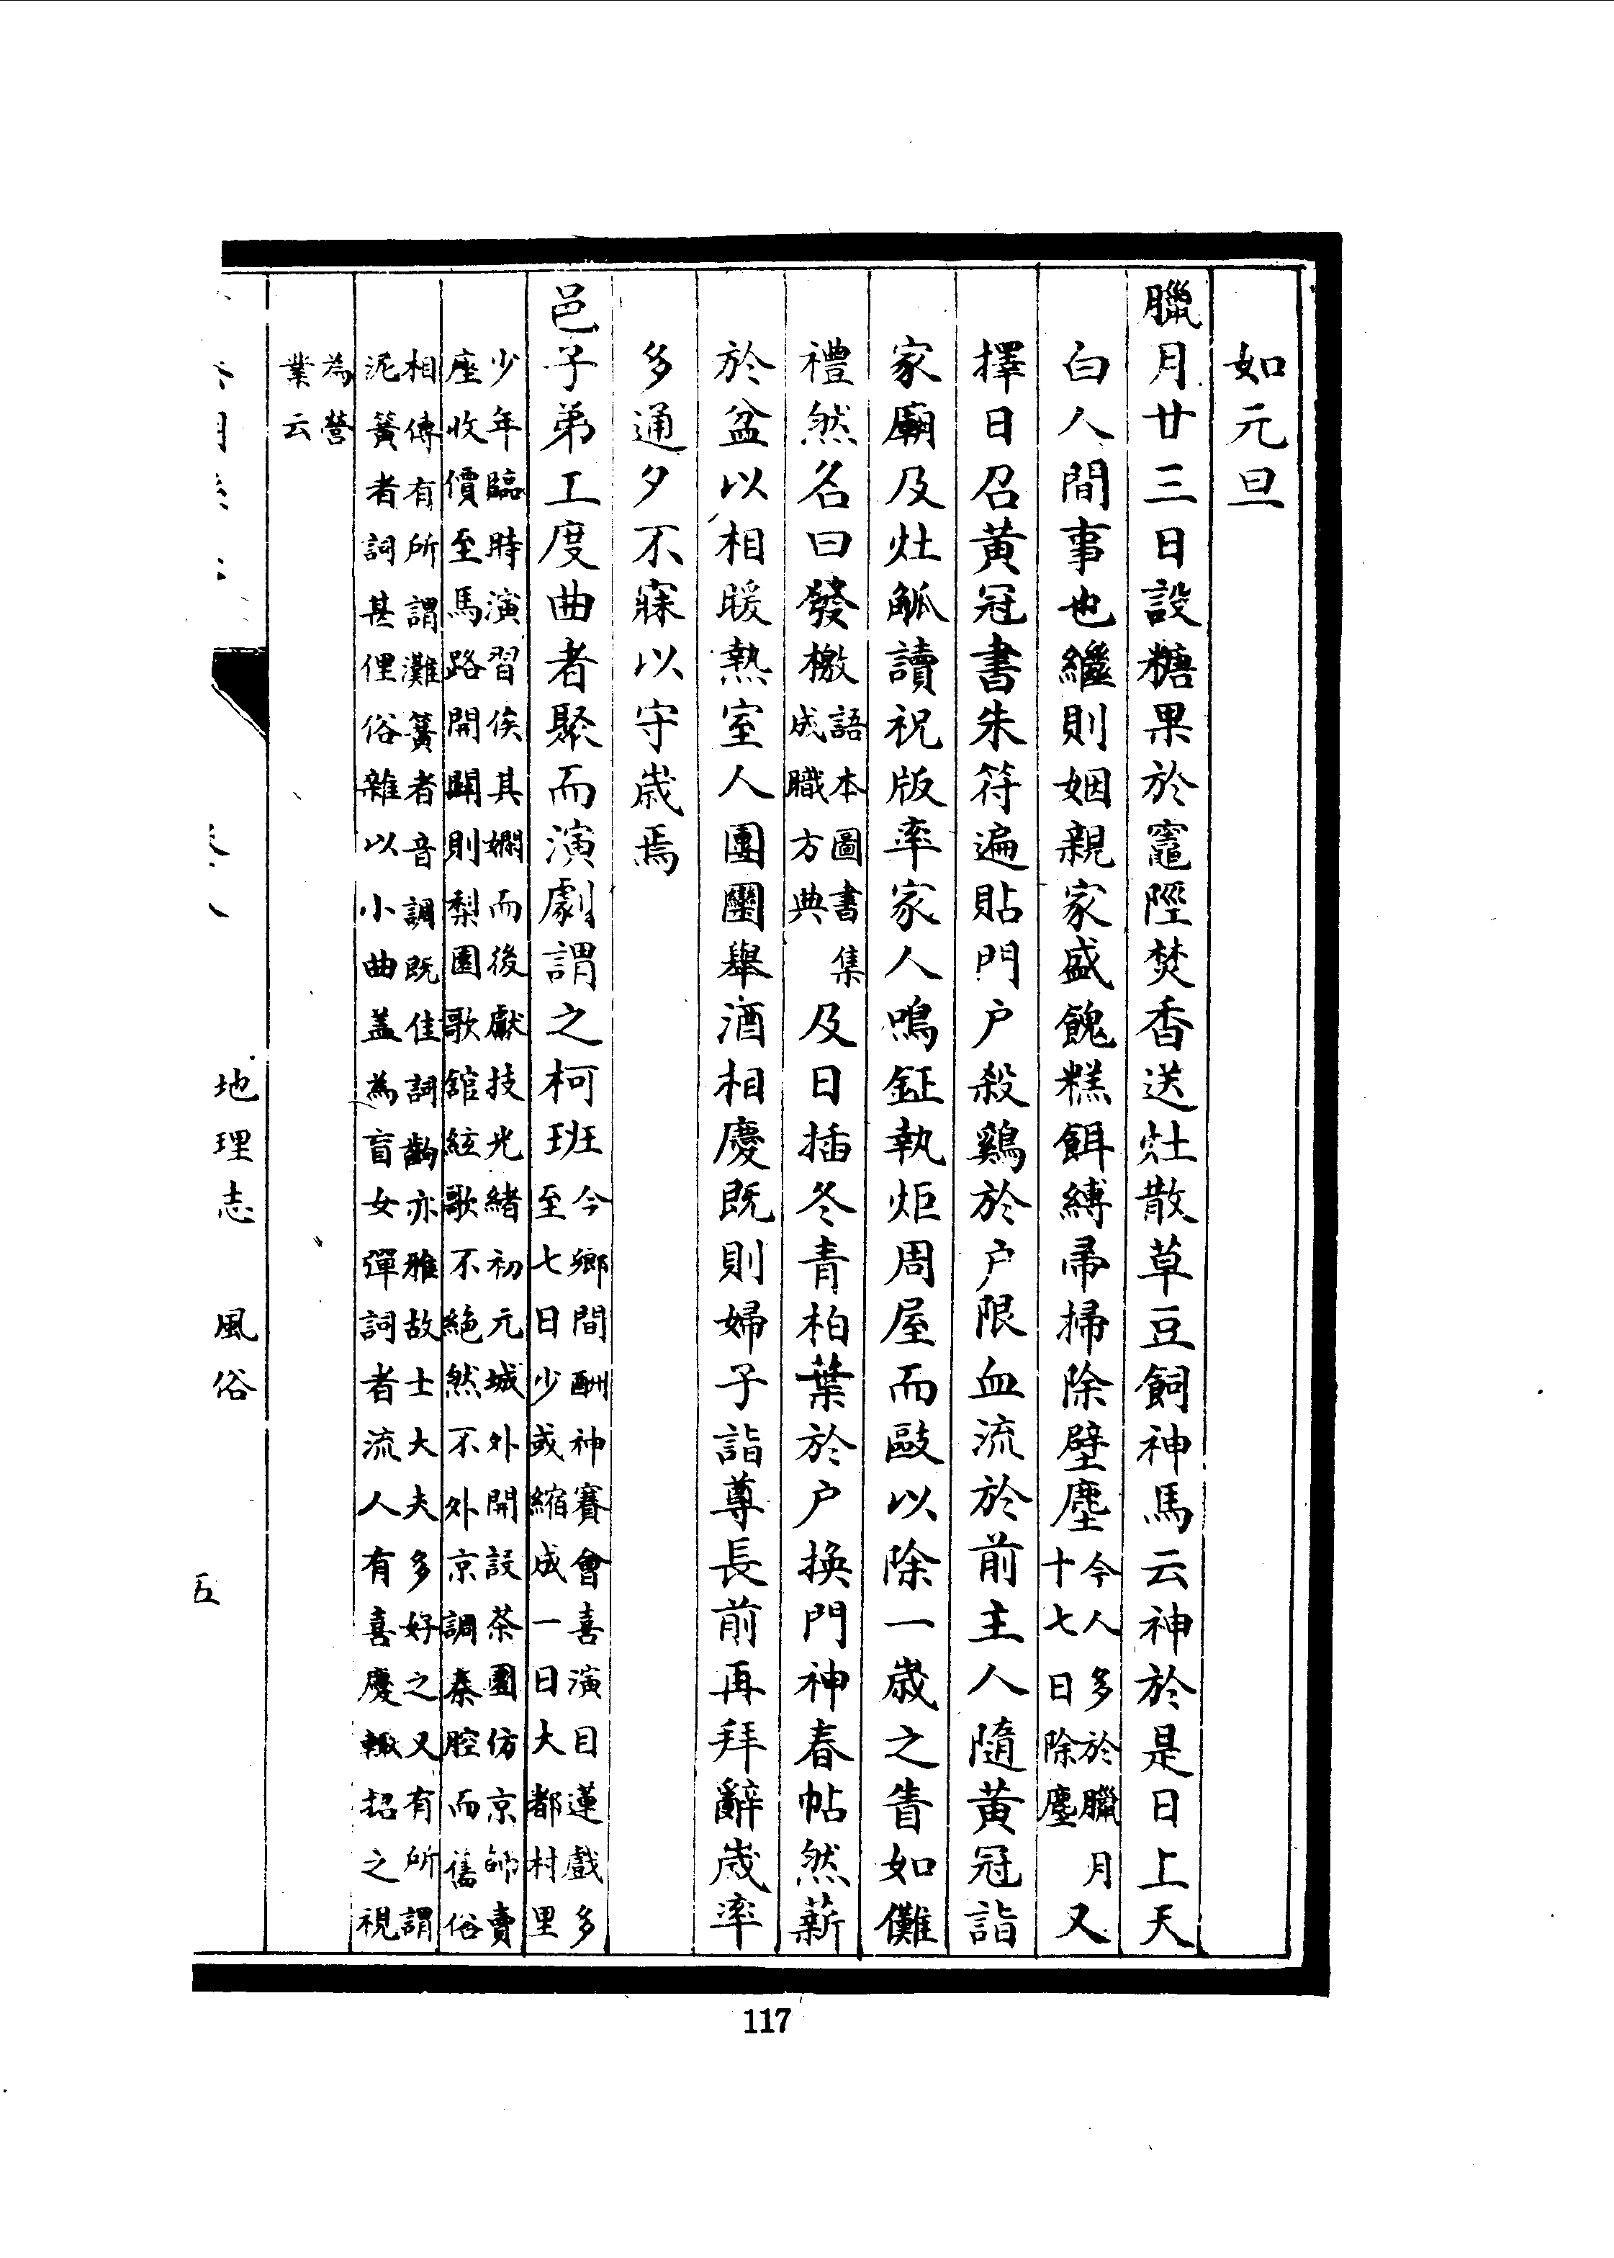 如元旦
臘月廿三日設糖果於竈陘焚香送灶散草豆飼神馬云神於是日上天
白人間事也繼則姻親家盛餽糕餌縛帚掃除壁塵今人多於臘月十七日除塵又
擇日召黃冠書朱符遍貼門戶殺鷄於戶限血流於前主人隨黃冠詣
家廟及灶觚讀祝版率家人鳴鉦執炬周屋而毆以除一歲之眚如儺
禮然名曰發檄語本圖書集成職方典及日插冬青柏葉於戶換門神春帖然薪
於盆以相暖熱室人團圞舉酒相慶既則婦子詣尊長前再拜辭歲率
多通夕不寐以守歲焉
邑子弟工度曲者聚而演劇謂之柯班今鄉間酬神賽會喜演目蓮戲多至七日少或縮成一日大都村里
少年臨時演習俟其嫻而後獻技光緒初元城外開設茶園仿京師賣座收價至馬路開闢則梨園歌舘絃歌不絕然不外京調秦腔而舊俗
相傳有所謂灘簧者音調既佳詞齣亦雅故士大夫多好之又有所謂泥簧者詞甚俚俗雜以小曲蓋為盲女彈詞者流人有喜慶輒招之視
為營業云
地理志 風俗
五
117